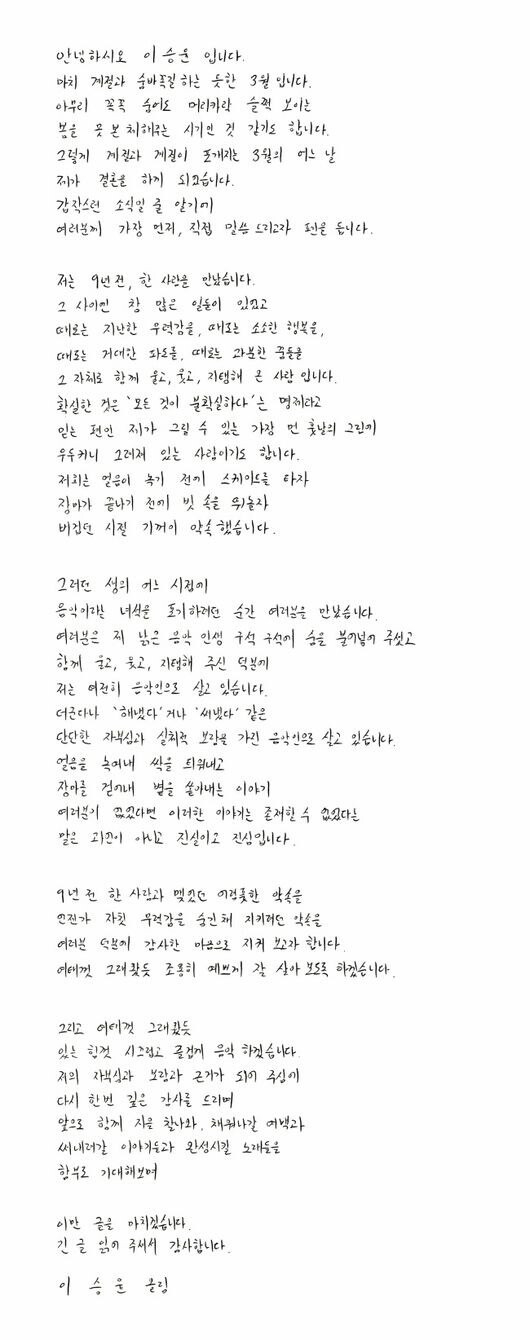 안녕하시오 이승윤 입니다.
마치 계절과 숨바꼭질하는 듯한 3월 입니다.
아무리 꼭꼭 숨어도 머리카락 슬쩍 보이는
봄을 못 본 체해주는 시기인 것 같기도 합니다.
그렇게 계절과 계절이 포개지는 3월의 어느 날
제가 결혼을 하게 되었습니다.
갑작스런 소식일 줄 알기에
여러분께 가장 먼저, 직접 말씀 드리고자 펜을 듭니다.
저는 9년 전, 한 사람을 만났습니다.
그 사이엔 참 많은 일들이 있었고
때로는 지난한 무력감을, 때로는 소소한 행복을,
때로는 거대한 파도를, 때로는 과분한 꿈들을
그 자체로 함께 울고, 웃고, 지탱해 온 사람 입니다.
확실한 것은 '모든 것이 불확실하다'는 명제라고
믿는 편인 제가 그릴 수 있는 가장 먼 훗날의 그림에
우두커니 그려져 있는 사람이기도 합니다.
저희는 얼음이 녹기 전에 스케이트를 타자
장마가 끝나기 전에 빗 속을 뛰놀자
버겁던 시절 기꺼이 약속했습니다.
그러던 생의 어느 시점에
음악이라는 녀석을 포기하려던 순간 여러분을 만났습니다.
여러분은 제 낡은 음악 인생 구석 구석에 숨을 불어넣어 주셨고
함께 울고, 웃고, 지탱해 주신 덕분에
저는 여전히 음악인으로 살고 있습니다.
더군다나 '해냈다'거나 '써냈다' 같은
단단한 자부심과 실체적 보람을 가진 음악인으로 살고 있습니다.
얼음을 녹여내 싹을 틔워내고
장마를 걷어내 볕을 쏟아내는 이야기
여러분이 없었다면 이러한 이야기는 존재할 수 없었다는
말은 과언이 아니고 진실이고 진심입니다.
9년 전 한 사람과 맺었던 어렴풋한 약속을
언젠가 자칫 무력감을 숨긴 채 지키려던 약속을
여러분 덕분에 감사한 마음으로 지켜 보고자 합니다.
여태껏 그래왔듯 조용히 예쁘게 잘 살아 보도록 하겠습니다.
그리고 여태껏 그래왔듯
있는 힘껏 시끄럽고 즐겁게 음악 하겠습니다.
저의 자부심과 보람과 근거가 되어 주심에
다시 한번 깊은 감사를 드리며
앞으로 함께 지을 찰나와, 채워나갈 여백과
써내려갈 이야기들과 완성시킬 노래들을
함부로 기대해보며
이만 글을 마치겠습니다.
긴 글 읽어 주셔서 감사합니다.
이 승 윤 올림